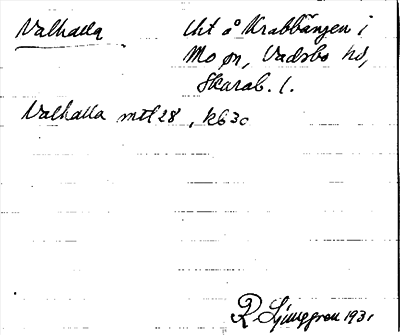 Valhalla lht å Krabbängen i
Mo sn, Vadsbo hd,
Skarab. l.
Valhalla mtl 28, kb 30
R Ljunggren 1931